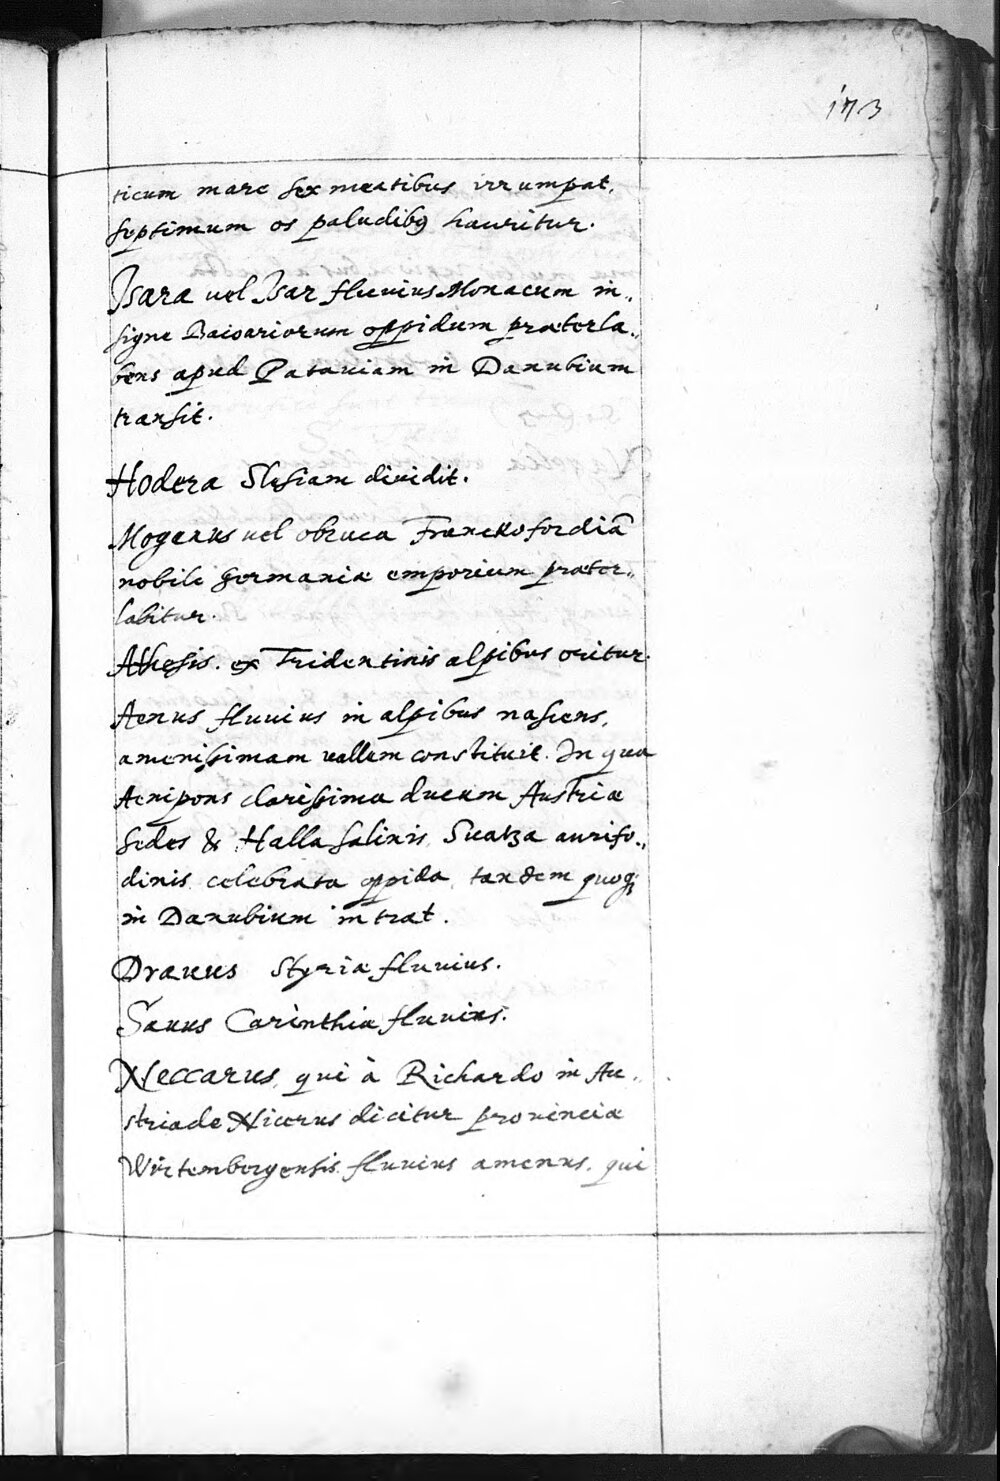 173
ticum mare sex meatibus irrumpat,
septimum os paludibꝰ hauritur.
Isara uel Isar fluuius Monacum in„
signe Baioariorum oppidum præterla„
bens apud Patauiam in Danubium
transit.
Hodera Slesiam diuidit.
Mogenus uel obruca Franckofordiã
nobile Germaniæ emporium præter„
labitur.
Athesis. ex Tridentinis alpibus oritur.
Aenus fluuius in alpibus nascens,
amenissimam uallem constituit. In qua
Aenipons clarissima ducum Austriæ
sedes & Halla salinis, Suatza aurifo„
dinis celebrata oppida, tandem quoqꝫ
in Danubium intrat.
Drauus Styriæ fluuius.
Sauus Carinthiæ fluuius.
Neccarus, qui à Richardo in Au„
striade Nicerus dicitur prouinciæ
Wirtembergensis fluuius amenus, qui